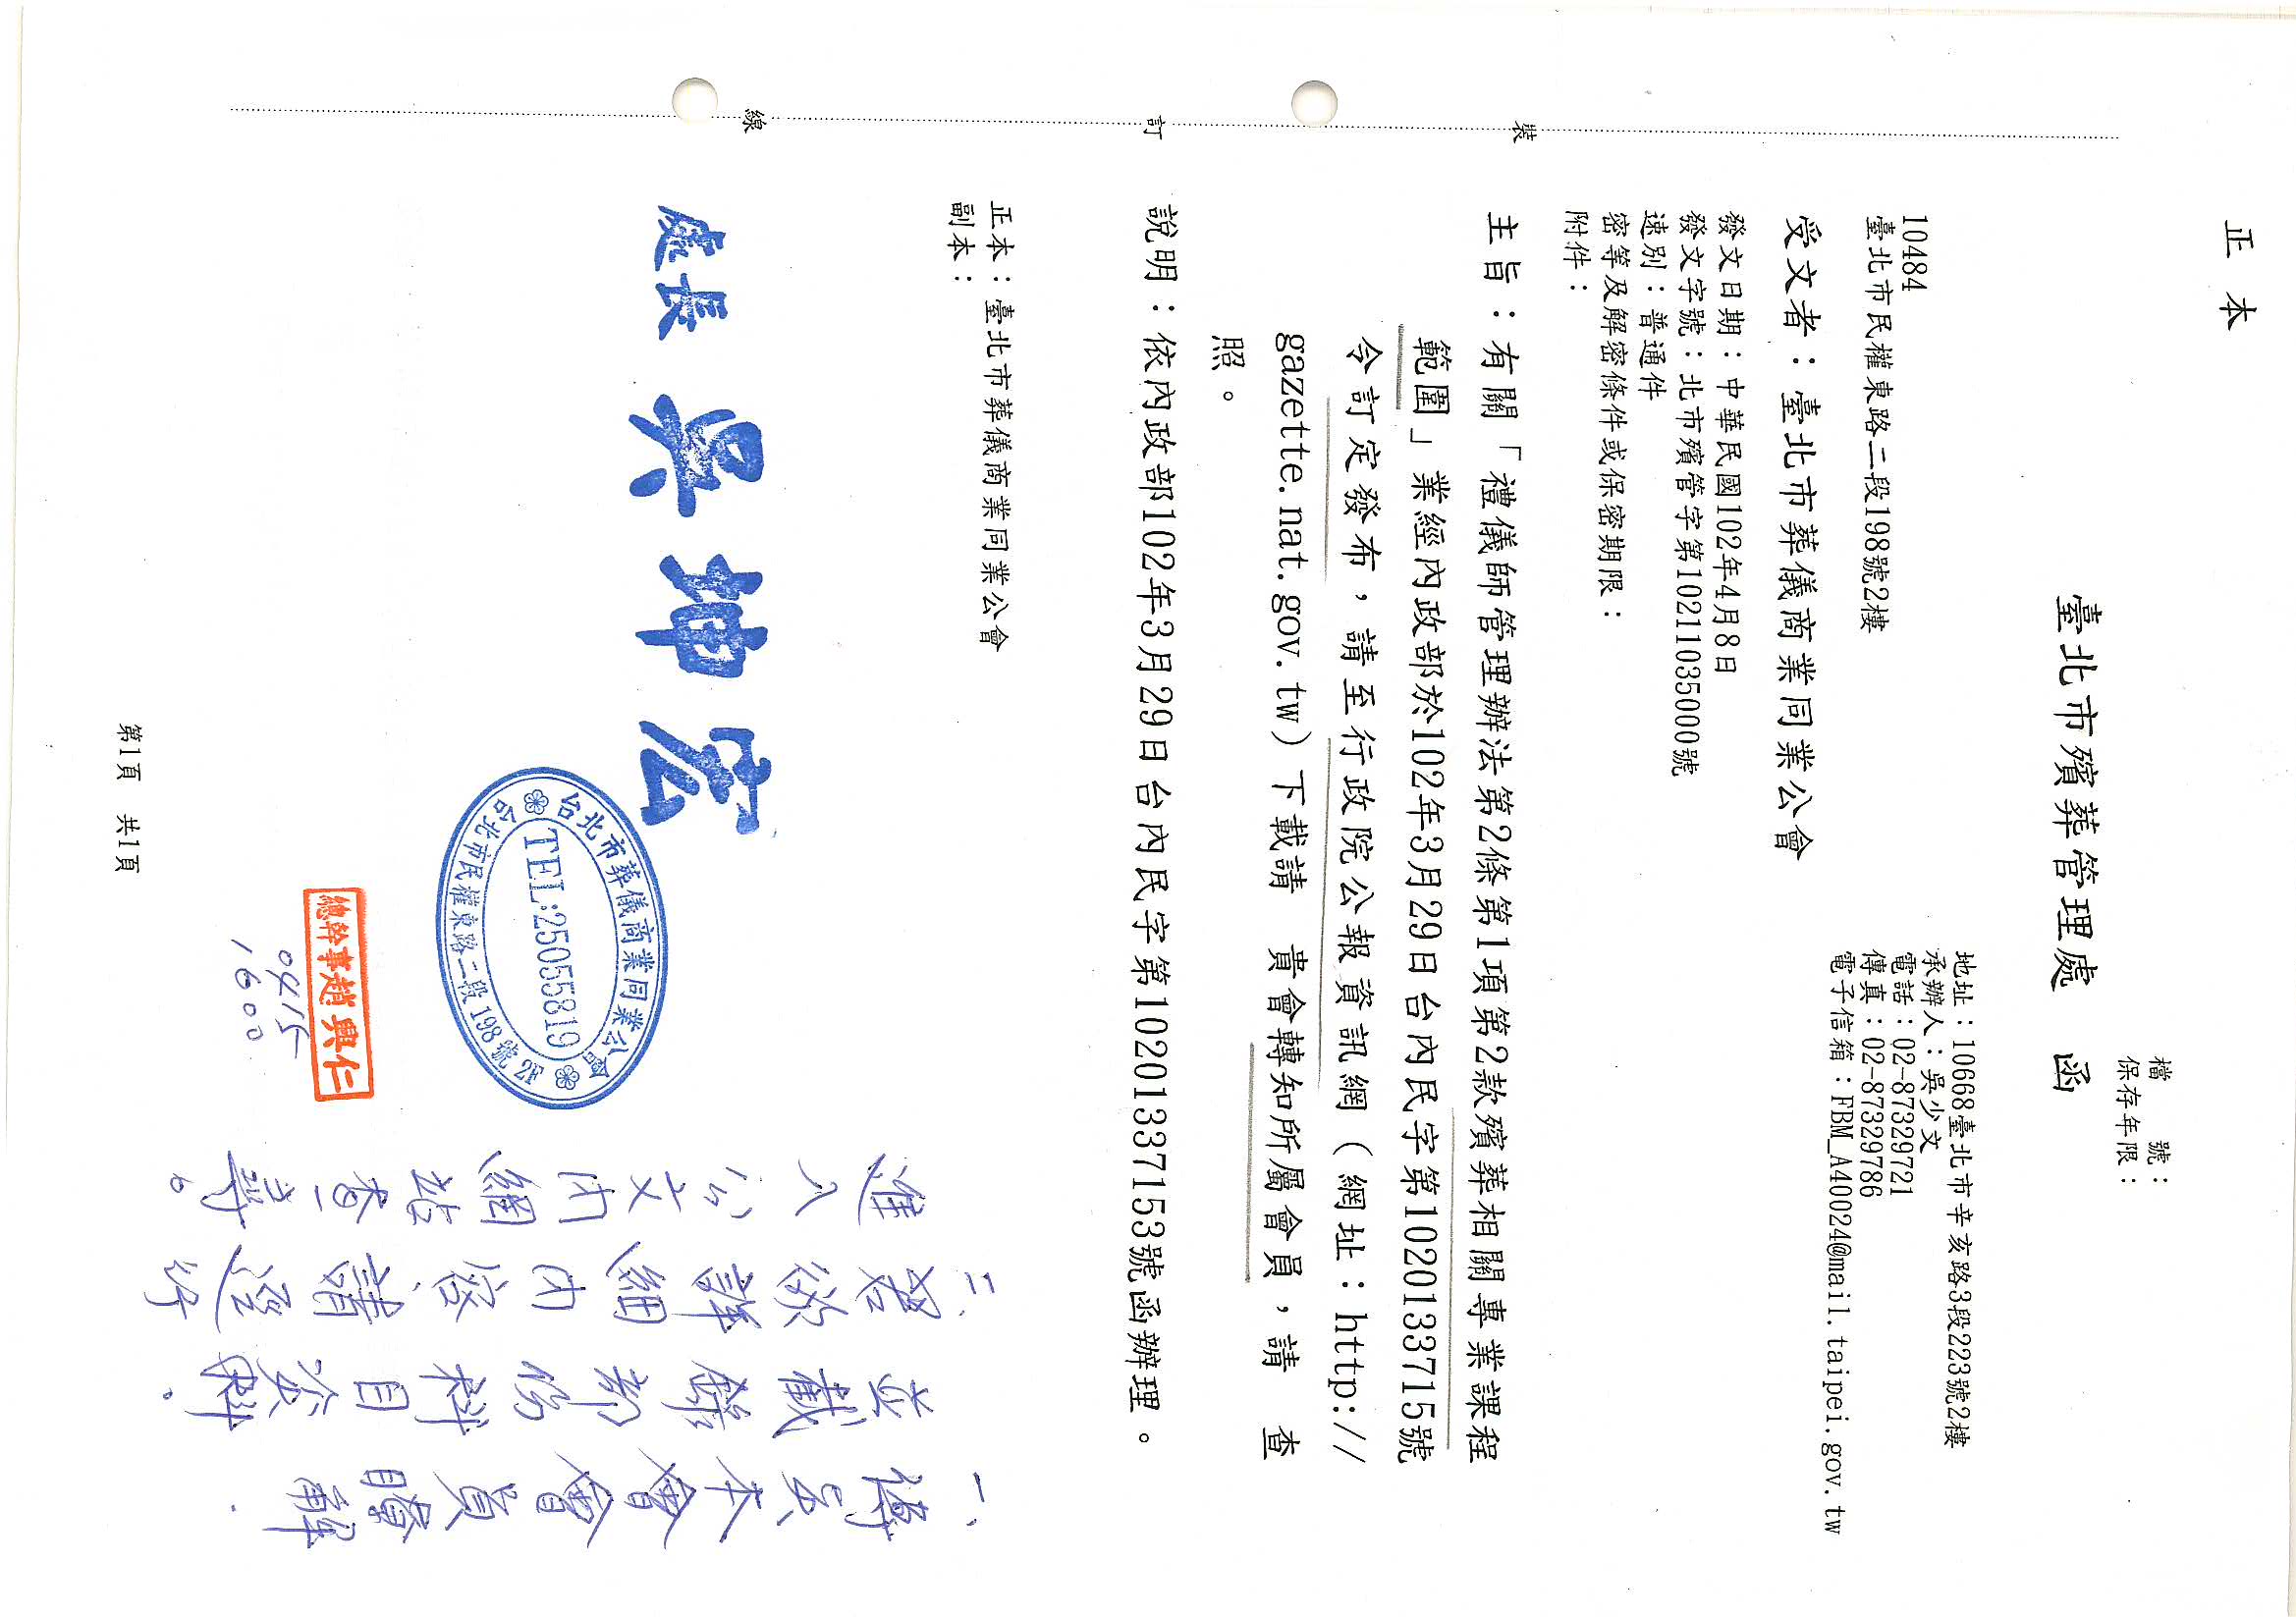 正本
檔　　號：
保存年限：
臺北市殯葬管理處　函
地址：10668臺北市辛亥路3段223號2樓
承辦人：吳少文
電話：02-87329721
傳真：02-87329786
電子信箱：FBM_A40024@mail.taipei.gov.tw
10484
臺北市民權東路二段198號2樓
受文者：臺北市葬儀商業同業公會
發文日期：中華民國102年4月8日
發文字號：北市殯管字第10211035000號
速別：普通件
密等及解密條件或保密期限：
附件：
主旨：有關「禮儀師管理辦法第2條第1項第2款殯葬相關專業課程
範圍」業經內政部於102年3月29日台內民字第10201337153715號
令訂定發布，請至行政院公報資訊網（網址：http://
gazette.nat.gov.tw）下載請　貴會轉知所屬會員，請　查
照。
說明：依內政部102年3月29日台內民字第10201337153號函辦理。
正本：臺北市葬儀商業同業公會
副本：
處長 吳坤宏
台北市葬儀商業同業公會
TEL:25055819
台北市民權東路二段198號2F
總幹事趙興仁
0415
1600
一、傳安本會會員瞭解
並載錄部份科目資料。
二、若欲詳細內容、請逕行
進入公文內網站查尋。
第1頁　共1頁
裝
訂
線